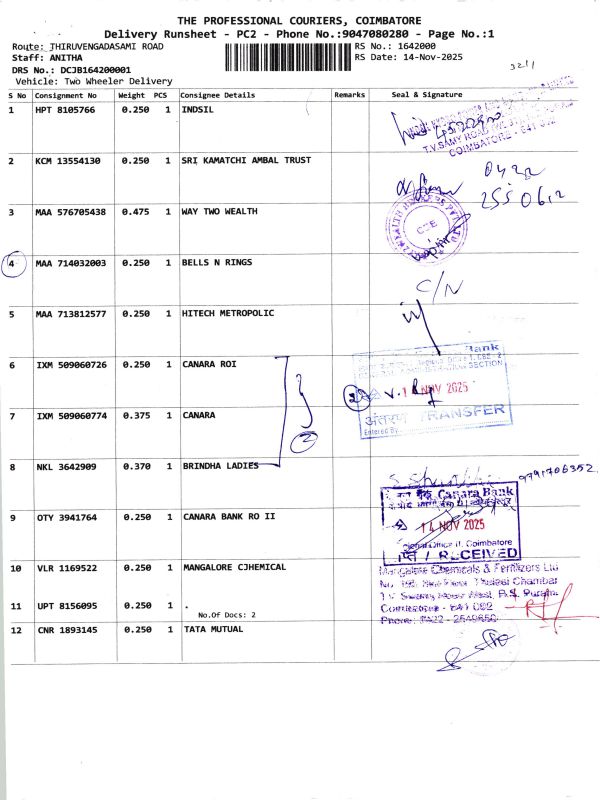 THE PROFESSIONAL COURIERS, COIMBATORE
Delivery Runsheet - PC2 - Phone No.:9047080280 - Page No.:1
Route: THIRUVENGADASAMI ROAD RS No.: 1642000
Staff: ANITHA RS Date: 14-Nov-2025
DRS No.: DCJB164200001
Vehicle: Two Wheeler Delivery
3211
S No Consignment No Weight PCS Consignee Details Remarks Seal & Signature
1 HPT 8105766 0.250 1 INDSIL
T.V.SAMY ROAD (W)
COIMBATORE - 641 002
2 KCM 13554130 0.250 1 SRI KAMATCHI AMBAL TRUST
0422
2550612
3 MAA 576705438 0.475 1 WAY TWO WEALTH
CBE
4 MAA 714032003 0.250 1 BELLS N RINGS
C/N
5 MAA 713812577 0.250 1 HITECH METROPOLIC
6 IXM 509060726 0.250 1 CANARA ROI
Bank
SECTION
2 14 NOV 2025
7 IXM 509060774 0.375 1 CANARA
2
अंतरण TRANSFER
Entered By
8 NKL 3642909 0.370 1 BRINDHA LADIES
9791706352
Canara Bank
9 OTY 3941764 0.250 1 CANARA BANK RO II
14 NOV 2025
Regional Office II, Coimbatore
RECEIVED
10 VLR 1169522 0.250 1 MANGALORE CJHEMICAL
Mangalore Chemicals & Fertilizers Ltd
Thulasi Chambar
11 UPT 8156095 0.250 1 .
No.Of Docs: 2
T.V. Swamy Road West, R.S. Puram
Coimbatore - 641 002
12 CNR 1893145 0.250 1 TATA MUTUAL